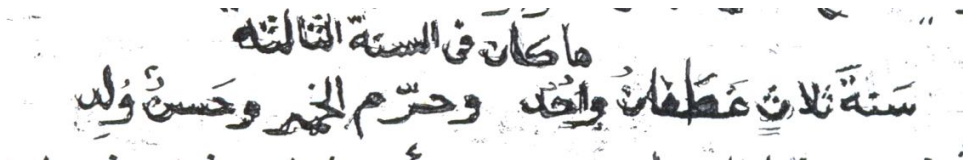 ما كان فى السنة الثالثه
سَنَةَ ثلاثٍ غَطَفَانُ وأُحُد وحرّم الخمر وحَسنٌ وُلِد